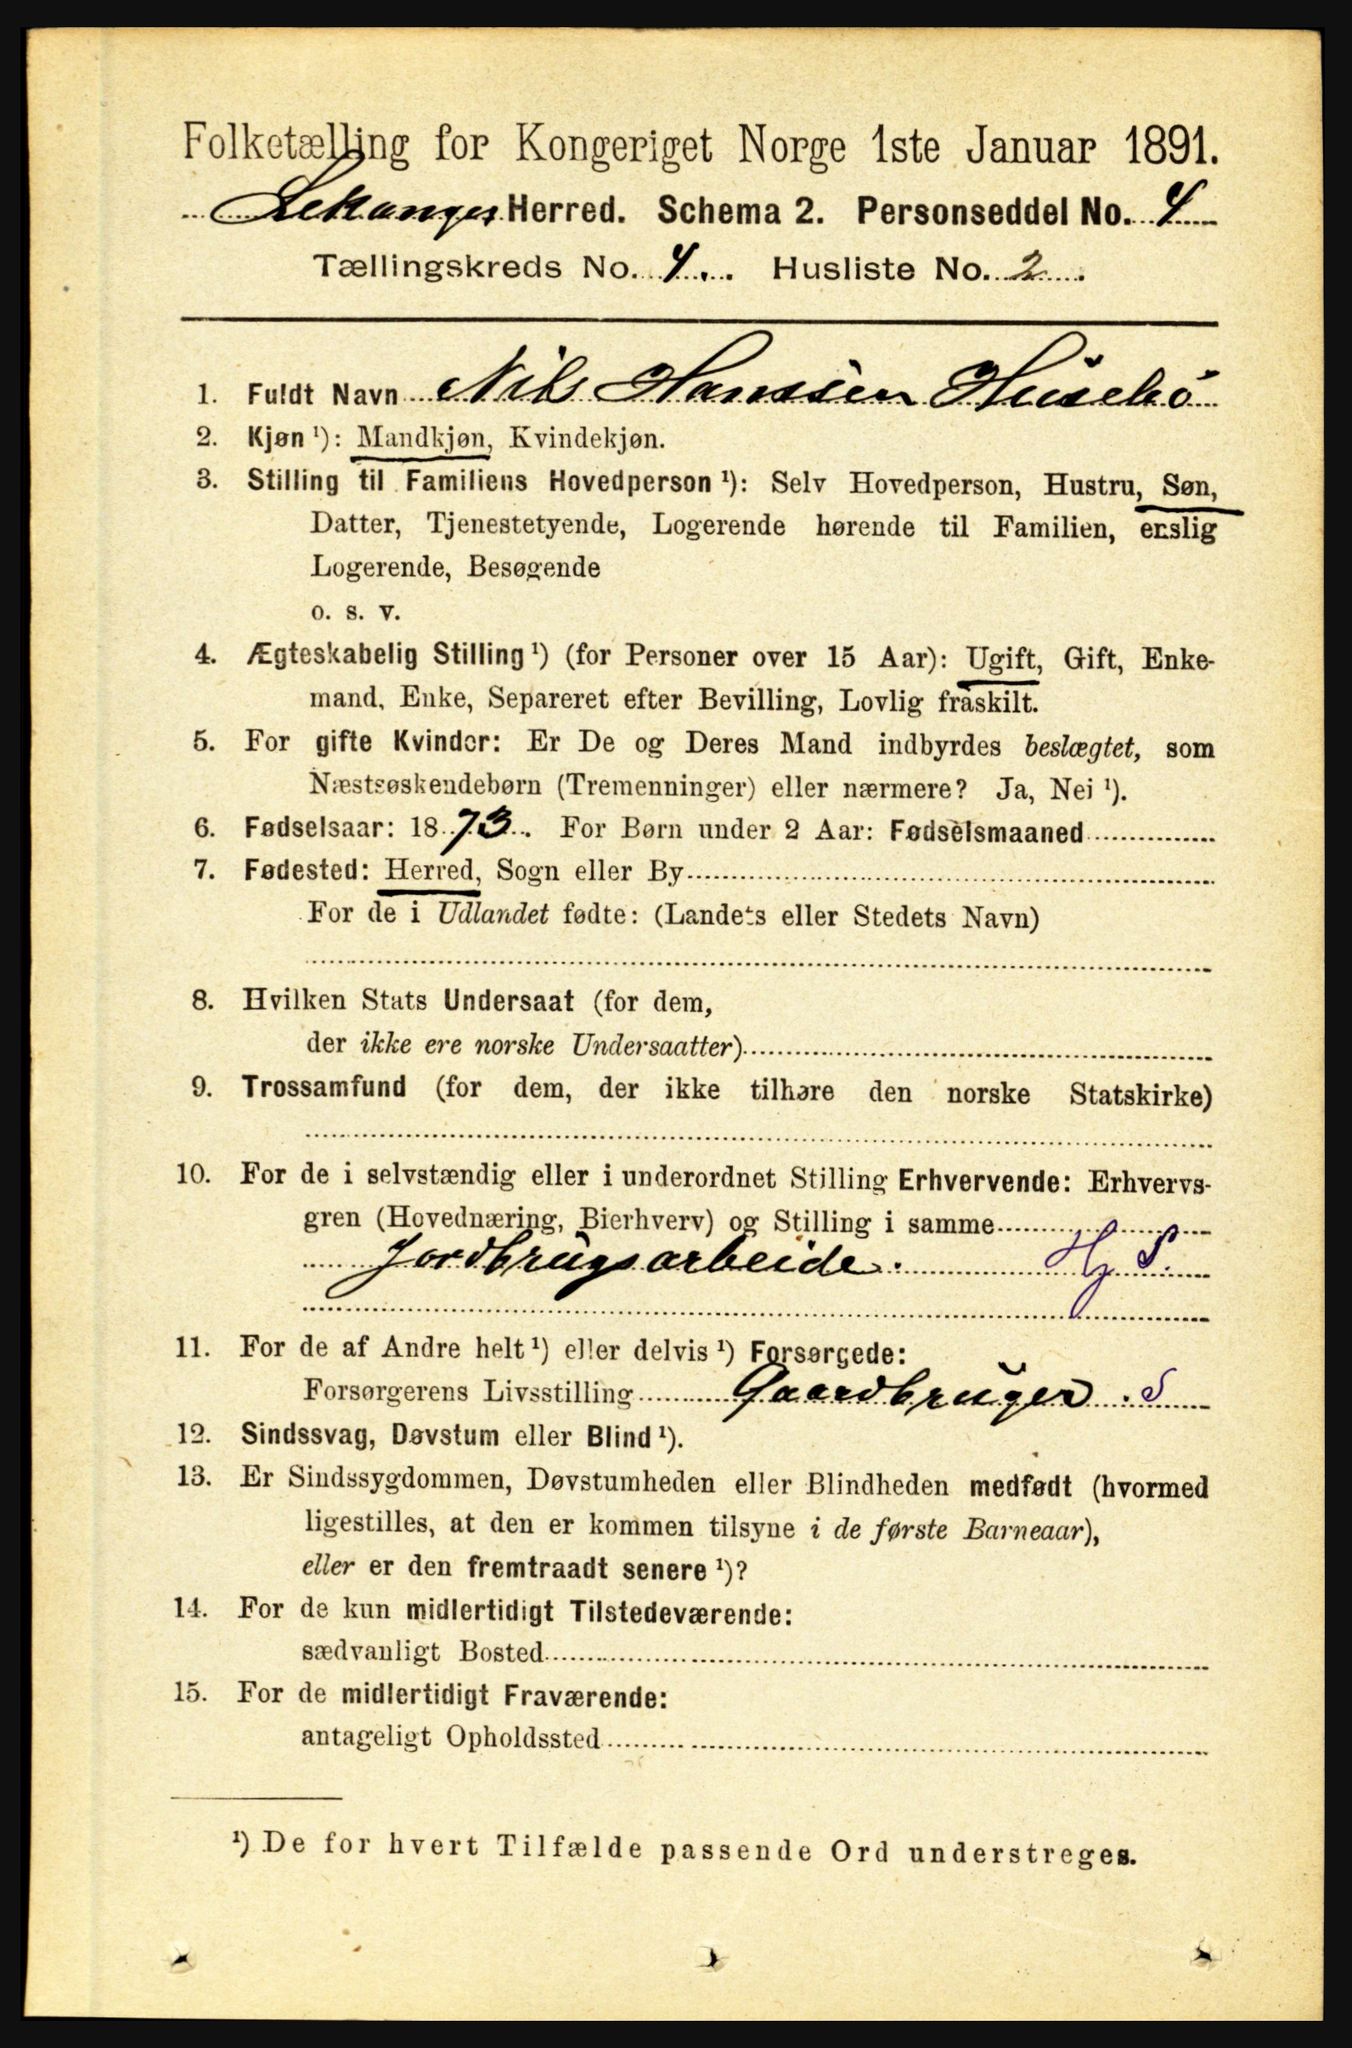 Folketælling for Kongeriget Norge 1ste Januar 1891.
Lekanges Herred. Schema 2. Personseddel No. 4
Tællingskreds No. 4. Husliste No. 2.
1. Fuldt Navn Nils Hanssen Husebö
2. Kjøn ¹): Mandkjøn, Kvindekjøn.
3. Stilling til Familiens Hovedperson ¹): Selv Hovedperson, Hustru, Søn,
Datter, Tjenestetyende, Logerende hørende til Familien, enslig
Logerende, Besøgende
o. s. v.
4. Ægteskabelig Stilling ¹) (for Personer over 15 Aar): Ugift, Gift, Enke-
mand, Enke, Separeret efter Bevilling, Lovlig fraskilt.
5. For gifte Kvinder: Er De og Deres Mand indbyrdes beslægtet, som
Næstsøskendebørn (Tremenninger) eller nærmere? Ja, Nei ¹).
6. Fødselsaar: 1873. For Børn under 2 Aar: Fødselsmaaned
7. Fødested: Herred, Sogn eller By
For de i Udlandet fødte: (Landets eller Stedets Navn)
8. Hvilken Stats Undersaat (for dem,
der ikke ere norske Undersaatter)
9. Trossamfund (for dem, der ikke tilhøre den norske Statskirke)
10. For de i selvstændig eller i underordnet Stilling Erhvervende: Erhvervs-
gren (Hovednæring, Bierhverv) og Stilling i samme
Jordbrugsarbeide. Hj S.
11. For de af Andre helt ¹) eller delvis ¹) Forsørgede:
Forsørgerens Livsstilling Gaardbruger. S
12. Sindssvag, Døvstum eller Blind ¹).
13. Er Sindssygdommen, Døvstumheden eller Blindheden medfødt (hvormed
ligestilles, at den er kommen tilsyne i de første Barneaar),
eller er den fremtraadt senere ¹)?
14. For de kun midlertidigt Tilstedeværende:
sædvanligt Bosted
15. For de midlertidigt Fraværende:
antageligt Opholdssted
¹) De for hvert Tilfælde passende Ord understreges.